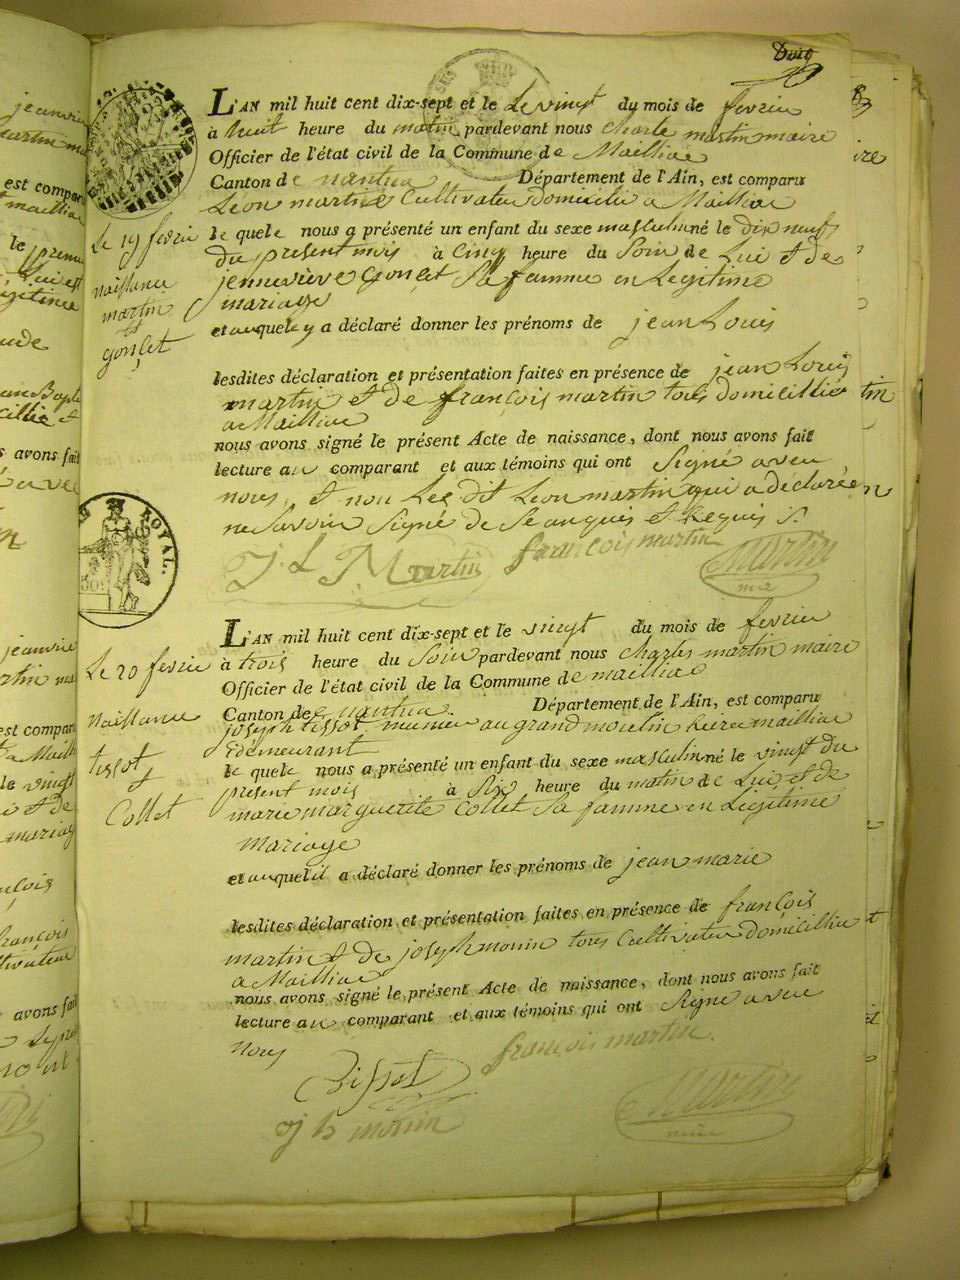 Duty
L'AN mil huit cent dix-sept et le Le vingt du mois de fevrie
à huit heure du matin pardevant nous charle martin maire
Officier de l'état civil de la Commune de Mailliac
Canton de nantua Département de l'Ain, est comparu
Leon martin Cultivateu domicilié a Mailliac
le quele nous a présenté un enfant du sexe masculin né le dix neuf
du present mois à Cinq heure du Soir de Lui et de
jennevieve Gonçet Sa famme en Legitime
mariage
et auquele y a déclaré donner les prénoms de jean Louis
lesdites déclaration et présentation faites en présence de jean Louis
martin et de françois martin tous domicillié
a Mailliac
nous avons signé le présent Acte de naissance, dont nous avons fait
lecture au comparant et aux témoins qui ont Signé avec
nous, et non Le dit Leon martin qui a declarée
ne Savoir Signé de Se anquis et Requis
J. L Martin françois martin Martin
mre
Le 19 fevrie
naissance
martin
et
gonçet
ROYAL.
L'AN mil huit cent dix-sept et le vingt du mois de fevrier
à trois heure du Soir pardevant nous charles martin maire
Officier de l'état civil de la Commune de mailliac
Canton de nantua. Département de l'Ain, est comparu
joseph tissot munier au grand moulin mailliac
demeurant
le quele nous a présenté un enfant du sexe masculin né le vingt du
present mois à Six heure du matin de Lui et de
marie marguerite Collet Sa famme en Legitime
mariage
et auquel il a déclaré donner les prénoms de jean marie
lesdites déclaration et présentation faites en présence de françois
martin et de joseph monin tous Cultivateu domicillié
a Mailliac
nous avons signé le présent Acte de naissance, dont nous avons fait
lecture au comparant et aux témoins qui ont Signé avec
nous
Tissot françois martin.
jh monin Martin
maire
Le 20 fevrie
naissance
tissot
et
Collet